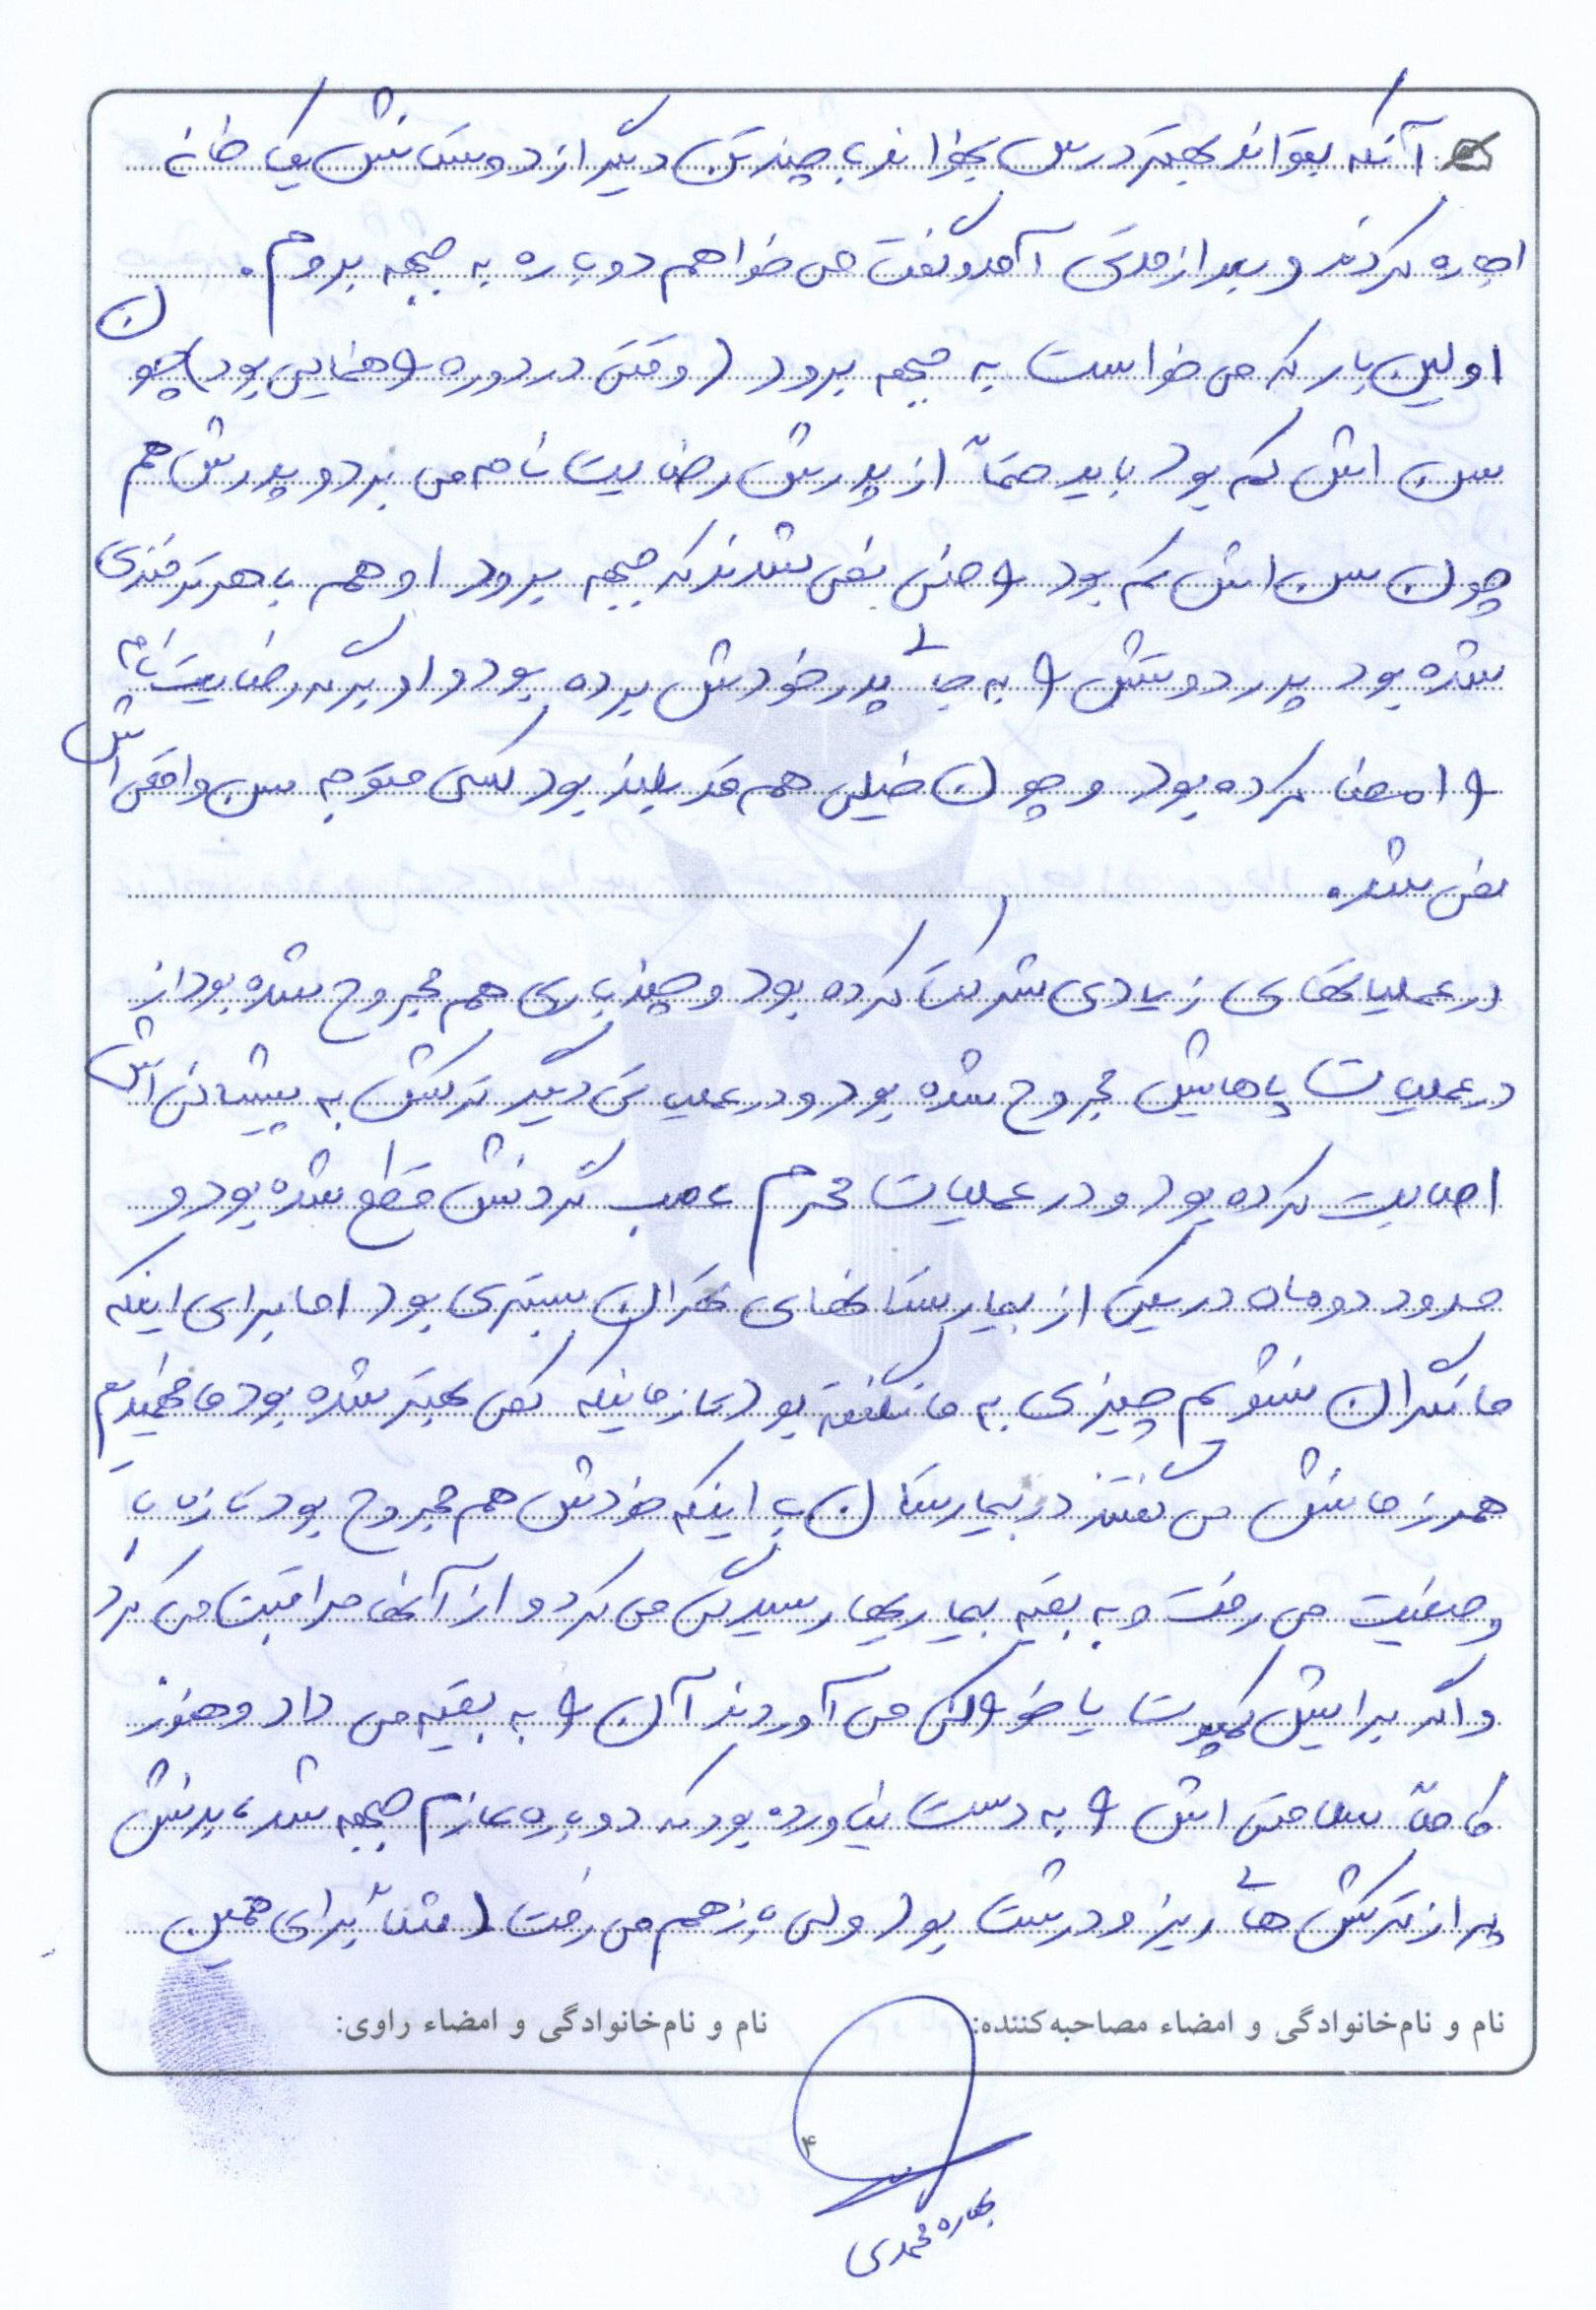 آنکه بتواند بهتر درس بخواند با چند تن دیگر از دوستانش یک خانه
اجاره کردند و بعد از مدتی آمد و گفت می خواهم دوباره به جبهه بروم .
اولین بار که می خواست به جبهه برود ( وقتی در دوره راهنمایی بود ) چون
سن اش کم بود باید حتماً از پدرش رضایت نامه می برد و پدرش هم
چون سن اش کم بود راضی نمی شدند که جبهه برود او هم با هر ترفندی
شده بود پدر دوستش را به جای پدر خودش برده بود و او برگه رضایت نامه اش
را امضا کرده بود و چون خیلی هم قد بلند بود کسی متوجه سن واقعی اش
نمی شد.
در عملیاتهای زیادی شرکت کرده بود و چند باری هم مجروح شده بود از
در عملیات پاهایش مجروح شده بود و در عملیاتی دیگر ترکش به پیشانی اش
اصابت کرده بود و در عملیات محرم عصب گردنش قطع شده بود و
حدود دو ماه در یکی از بیمارستانهای تهران بستری بود اما برای اینکه
ما نگران نشویم چیزی به ما نگفته بود تا زمانیکه کمی بهتر شده بود ما فهمیدیم
همرزمانش می گفتند در بیمارستان با اینکه خودش هم مجروح بود تا زمان با
وضعیت می رفت و به بقیه بیماریها رسیدگی می کرد و از آنها مراقبت می کرد
و اگر برایش کمپوت یا خوراکی می آوردند آن را به بقیه می داد و هنوز
کاملاً سلامتی اش را به دست نیاورده بود که دوباره عازم جبهه شد، بدنش
پر از ترکش های ریز و درشت بود ولی باز هم می رفت ( مثلاً برای همین
نام و نام‌خانوادگی و امضاء مصاحبه‌کننده:
نام و نام‌خانوادگی و امضاء راوی:
۴
بهاره محمدی